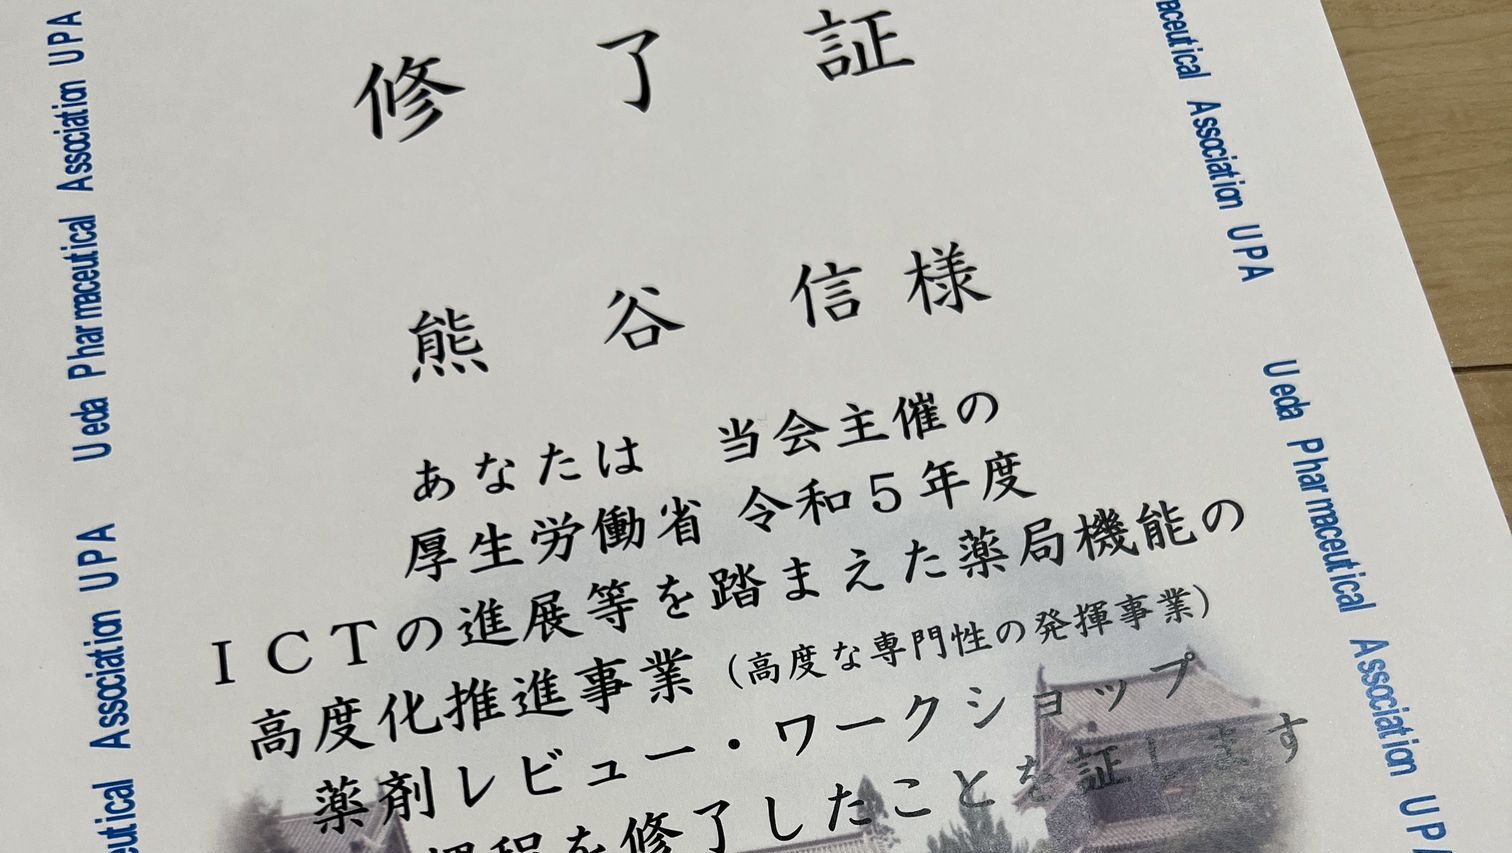 修了証
熊谷信様
あなたは　当会主催の
厚生労働省 令和５年度
ＩＣＴの進展等を踏まえた薬局機能の
高度化推進事業（高度な専門性の発揮事業）
薬剤レビュー・ワークショップ
課程を修了したことを証します
Ueda Pharmaceutical Association UPA
Association UPA
eutical
aceutical Association UPA
Ueda Pharmaceutical Association UPA